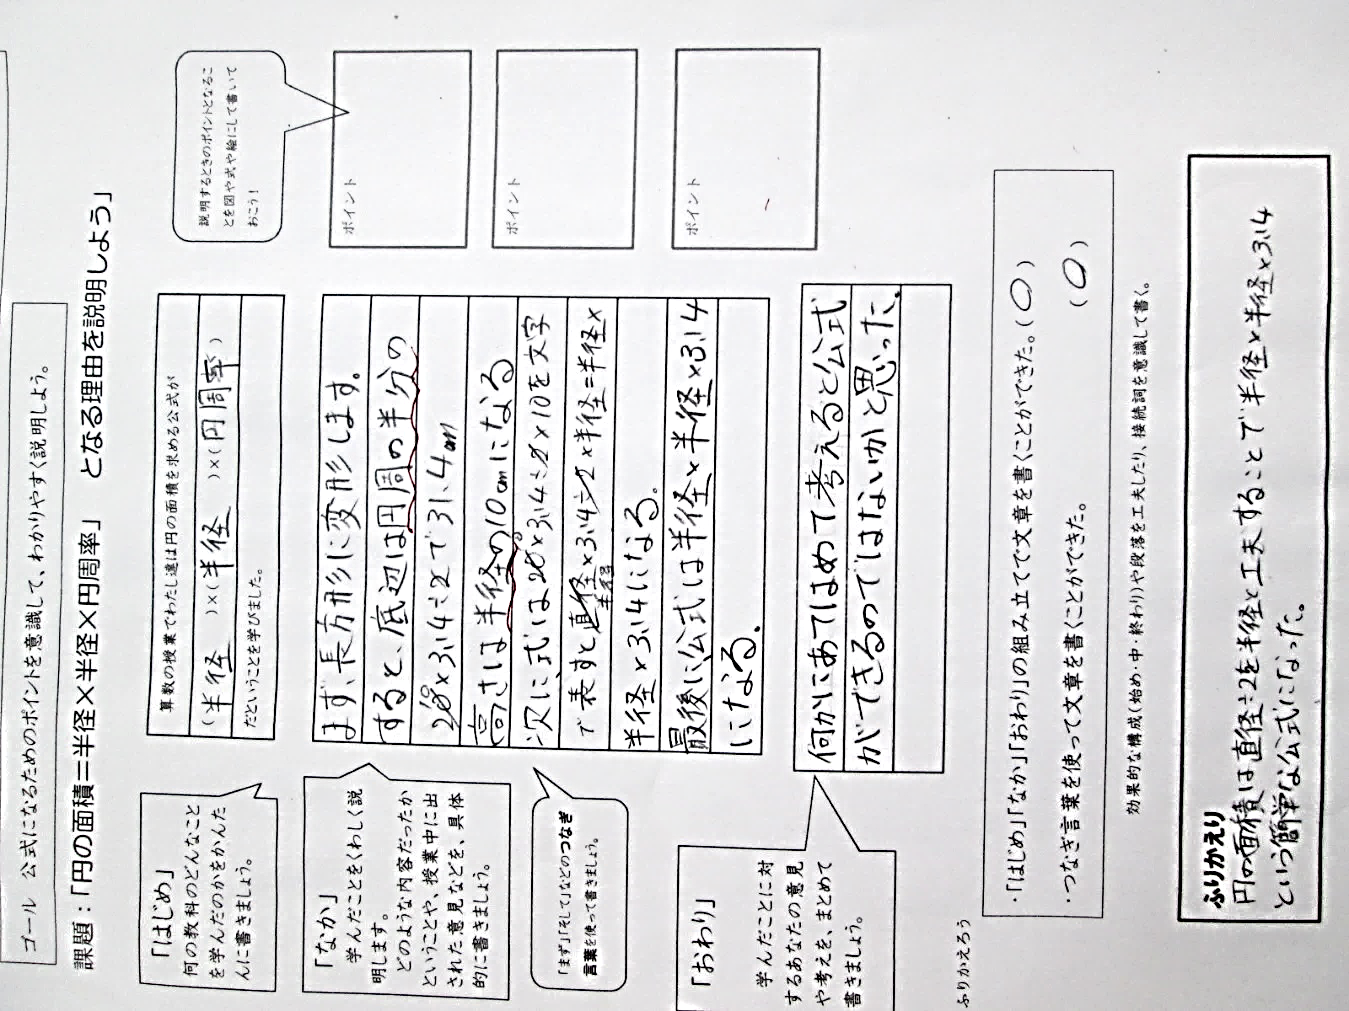 ゴール 公式になるためのポイントを意識して、わかりやすく説明しよう。
課題：「円の面積＝半径×半径×円周率」 となる理由を説明しよう」
「はじめ」
何の教科のどんなこと
を学んだのかをかんた
んに書きましょう。
算数の授業でわたし達は円の面積を求める公式が
（半径 ）×（半径 ）×（円周率）
だということを学びました。
説明するときのポイントとなるこ
とを図や式や絵にして書いて
おこう！
「なか」
学んだことをくわしく説
明します。
どのような内容だったか
ということや、授業中に出
された意見などを、具体
的に書きましょう。
「まず」「そして」などのつなぎ
言葉を使って書きましょう。
まず、長方形に変形します。
すると、底辺は円周の半分の
20×3.14÷2で31.4cm
高さは半径の10cmになる
次に、式は20×3.14÷2×10を文字
で表すと直径×3.14÷2×半径=半径×
半径
半径×3.14になる。
最後に公式は半径×半径×3.14
になる。
ポイント
ポイント
ポイント
「おわり」
学んだことに対
するあなたの意見
や考えを、まとめて
書きましょう。
何かにあてはめて考えると公式
ができるのではないかと思った。
ふりかえろう
・「はじめ」「なか」「おわり」の組み立てで文章を書くことができた。（○）
・つなぎ言葉を使って文章を書くことができた。 （○）
効果的な構成（始め・中・終わり）や段落を工夫したり、接続詞を意識して書く。
ふりかえり
円の面積は直径÷2を半径と工夫することで半径×半径×3.14
という簡単な公式になった。